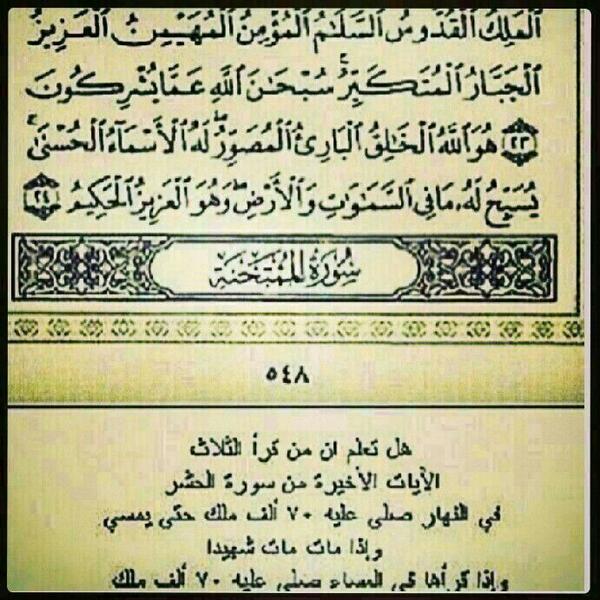 ٱلْمَلِكُ ٱلْقُدُّوسُ ٱلسَّلَٰمُ ٱلْمُؤْمِنُ ٱلْمُهَيْمِنُ ٱلْعَزِيزُ
ٱلْجَبَّارُ ٱلْمُتَكَبِّرُ ۚ سُبْحَٰنَ ٱللَّهِ عَمَّا يُشْرِكُونَ
٢٣ هُوَ ٱللَّهُ ٱلْخَٰلِقُ ٱلْبَارِئُ ٱلْمُصَوِّرُ ۖ لَهُ ٱلْأَسْمَآءُ ٱلْحُسْنَىٰ ۚ
يُسَبِّحُ لَهُۥ مَا فِى ٱلسَّمَٰوَٰتِ وَٱلْأَرْضِ ۖ وَهُوَ ٱلْعَزِيزُ ٱلْحَكِيمُ ٢٤
سُورَةُ الْمُمْتَحَنَةِ
٥٤٨
هل تعلم ان من قرأ الثلاث
الآيات الأخيرة من سورة الحشر
في النهار صلى عليه ٧٠ ألف ملك حتى يمسي
وإذا مات مات شهيدا
وإذا قرأها في المساء صلى عليه ٧٠ ألف ملك